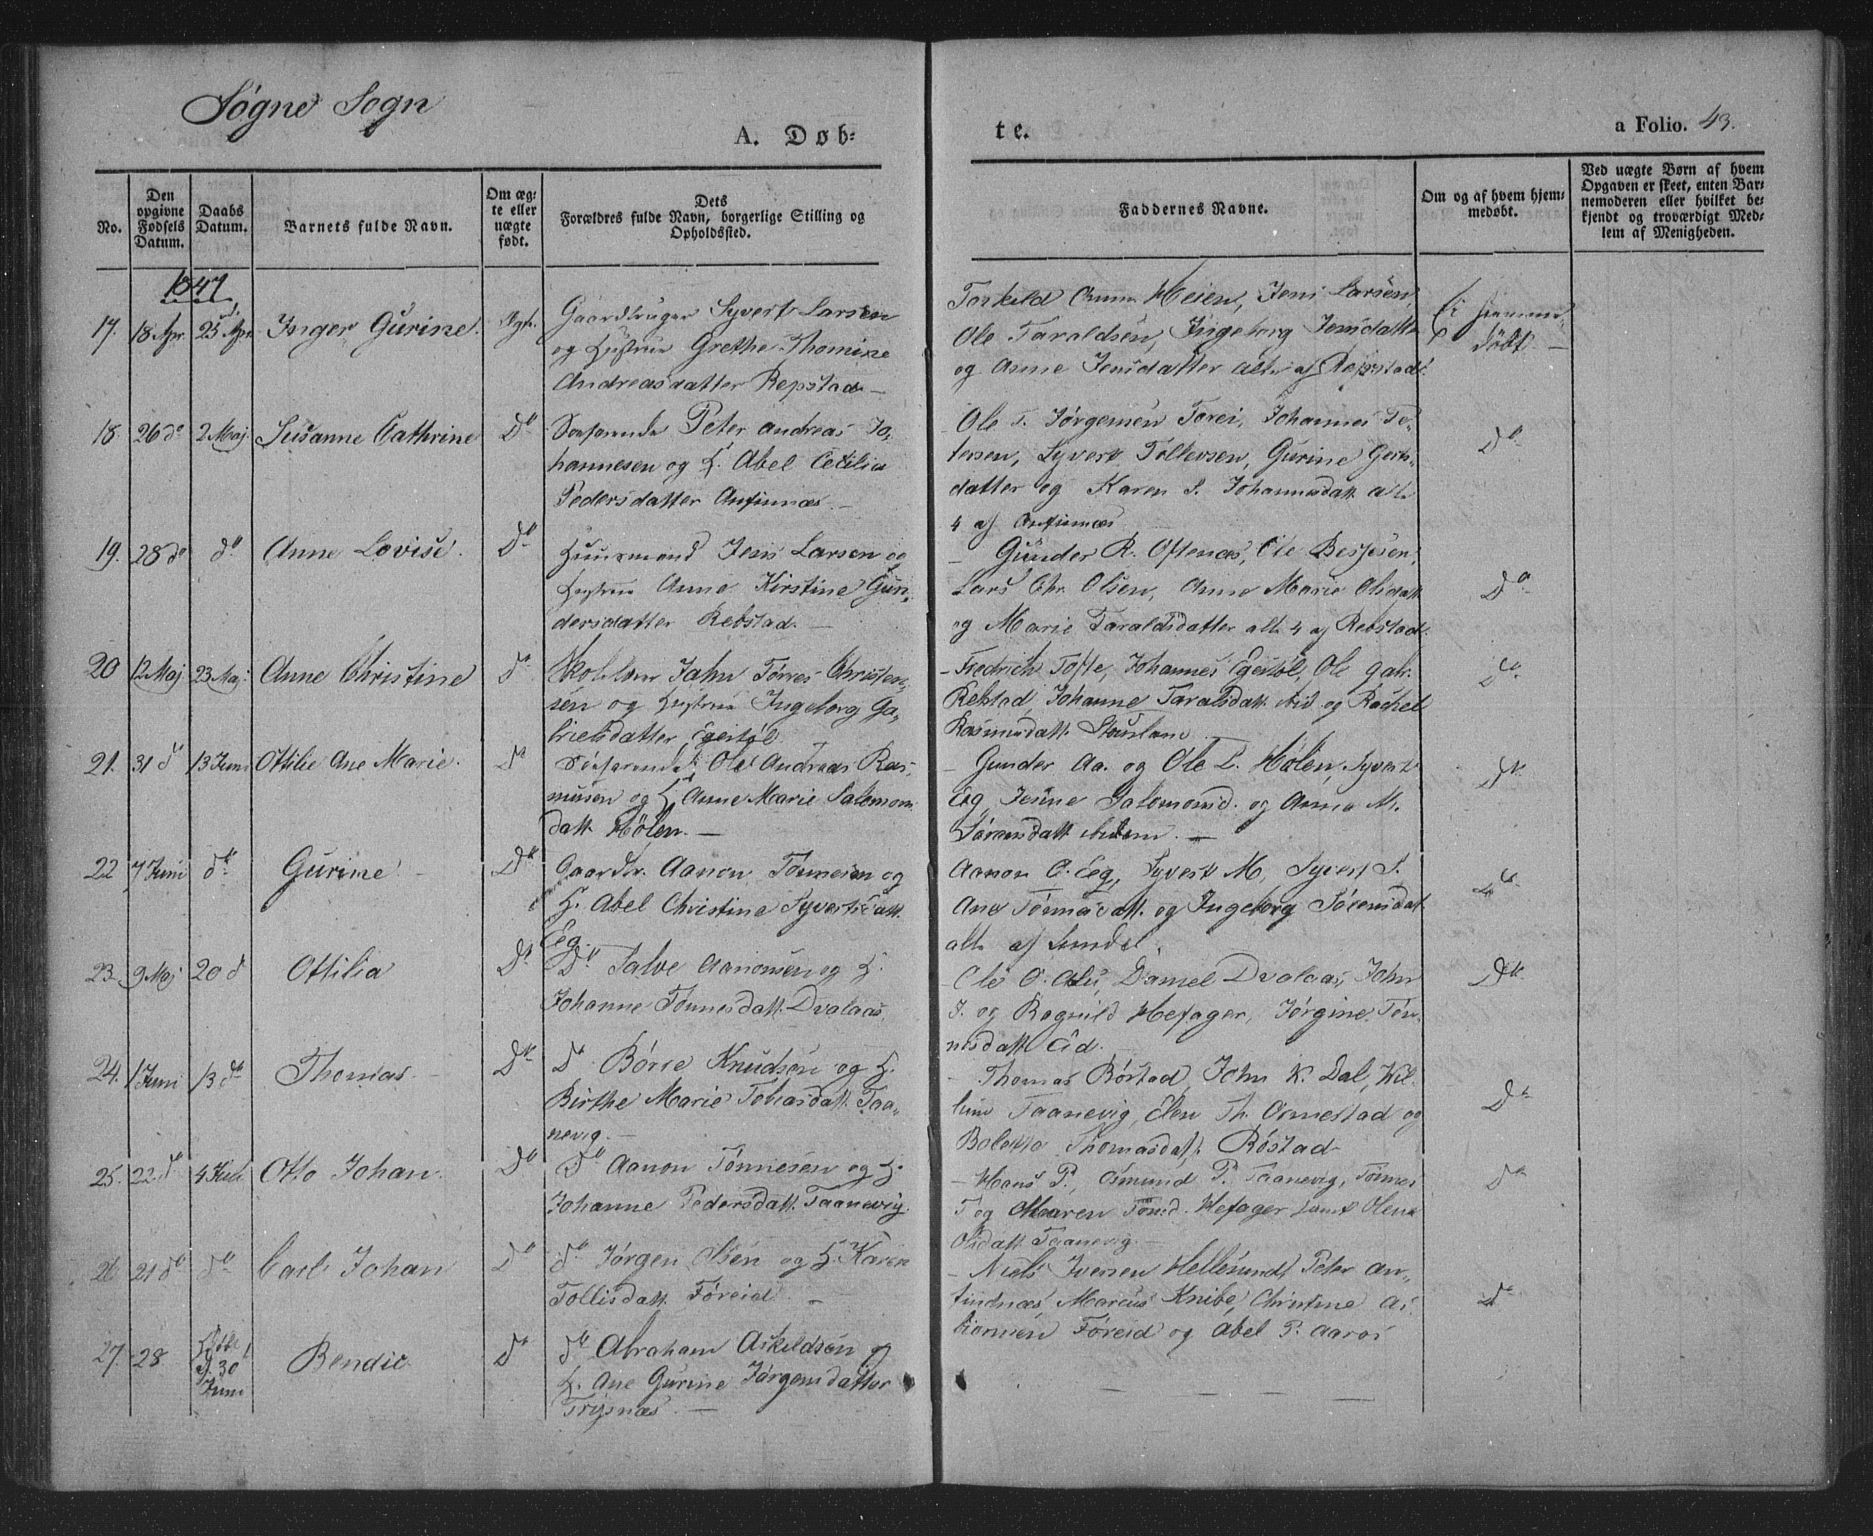 Søgne Sogn
A. Døb-
te.
a Folio. 43.
No.
Den opgivne Fødsels Datum.
Daabs Datum.
Barnets fulde Navn.
Om ægte eller uægte født.
Dets Forældres fulde Navn, borgerlige Stilling og Opholdssted.
Faddernes Navne.
Om og af hvem hjemmedøbt.
Ved uægte Børn af hvem Opgaven er skeet, enten Barnemoderen eller hvilket bekjendt og troværdigt Medlem af Menigheden.
1847
17. 18 Apr 25 Apr Inger Gurine. Ægte.
Gaardbruger Syvert Larsen
og Hustrue Grethe Thomine
Andreasdatter Repstad. —
Torkild Meien, Jens Larsen,
Ole Taraldsen, Ingeborg Jensdatter
og Anne Jensdatter alle af Repstad.
Ei hjemme-
døbt —
18. 26 do 2 Maj Susanne Cathrine Do
Søefarende Peter Andreas Jo-
hannesen og H. Abel Cecilia
Pedersdatter Anfinnæs. —
Ole T. Jørgensen Forei, Johannes Pe-
tersen, Syvert Tollevsen, Gurine
datter og Karen S. Johannesdatt alle
4 af Anfinnæs
Do
19. 28 do do Anne Lovise. Do
Huusmand Jens Larsen og
Hustrue Anne Kirstine Gun-
dersdatter Rebstad. —
— Gunder R. Oftenæs, Ole Bessesen,
Lars Chr. Olsen, Anne Marie Olsdatt
og Marie Taraldsdatter alle 4 af Rebstad.
Do
20 12 Maj 23 Maj Anne Christine do
John Tørres Christen-
sen og Hustrue Ingeborg Ga-
brielsdatter Egestøl
— Fredrich Tofte, Johannes Egestøl, Ole Gabr.
Rebstad, Johanne Taraldsdatt ibid og Rachel
Rasmusdatt
do
21. 31 d 13 Juni Ottilie Ane Marie. Do
Søefarende Ole Andreas Ras-
musen og H. Anne Marie Salomons
datt Hølen. —
— Gunder Aa. og Ole L. Hølen, Syvert
Eeg, Jesine Salomonsd. og Anna M.
Sørensdatt ibidem. —
Do
22 7 Juni do Gurine Do
Gaardbr. Aanon Tønnesen og
H. Abel Christine Syvertsdatt.
Eeg.
Aanon O. Eeg, Syvert M., Syvert S.
Ane Tønnesdatt. og Ingeborg Sørensdat
alle af Lundel.
do
23. 9 Maj 20 d Ottilia Do
Do Salve Aanonsen og H.
Johanne Tønnesdatt. Dvalaas.
— Ole O. Daniel Dvalaas, John
J. og Ragnild Hefager, Jørgine Tøn-
nesdatt
Do
24. 1 Juni 13 do Thomas Do
Do Børre Knudsen og H.
Birthe Marie Tobiasdatt. Taa-
nevig. —
— Thomas Røstad, John K. Dal, Wil-
lum Taanevig, Elen Th. Ormestad og
Bolette Thomasdatt. Røstad
Do
25. 22. do 4 Juli Otto Johan. Do
Do Aanon Tønnesen og H.
Johanne Pedersdatt. Taanevig.
— Hans P., Osmund P. Taanevig, Tønnes
T og Maren Tønsd. Hefager samt Olene
Olsdatt Taanevig. —
do
26 21 do do Carl Johan Do
do Jørgen Olsen og H. Karen
Tollisdatt. Føreid. —
— Niels Iversen Hellesund, Peter An-
findnæs, Marcus Knibe, Christine As-
Føreid og Abel P. Aaros
do
27. 28 30 Juni Bendic do
do Abraham Askildsen og
H. Ane Gurine Jørgensdatter
Trysnæs. —
— — — —